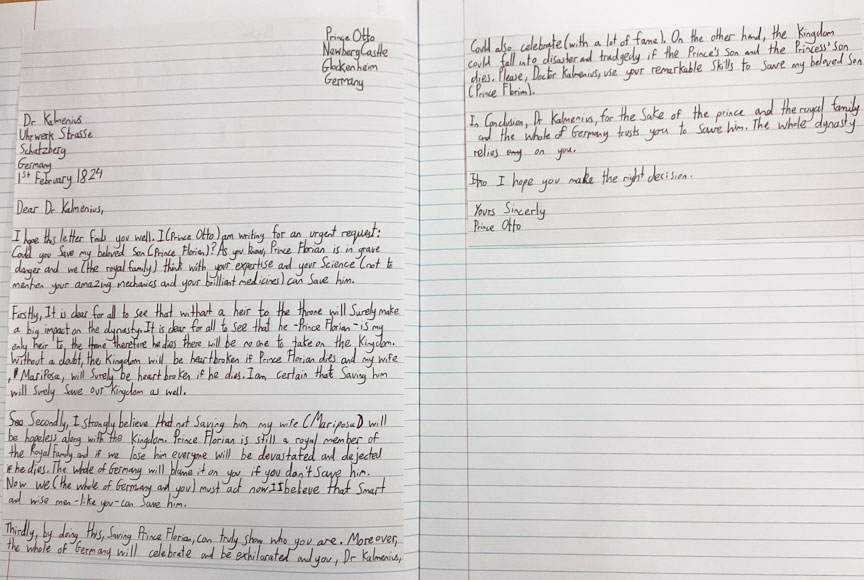 Prince Otto
Newberg Castle
Glockenheim
Germany
Dr Kalmenius
Uhrwerk Strasse
Schatzberg
Germany
1st February 1824
Dear Dr Kalmenius,
I hope this letter finds you well. I (Prince Otto) am writing for an urgent request:
Could you save my beloved son (Prince Florian)? As you know, Prince Florian is in grave
danger and we (the royal family) think with your expertise and your Science (not to
mention your amazing mechanics and your brilliant medicines) can save him.
Firstly, It is clear for all to see that without a heir to the throne will surely make
a big impact on the dynasty. It is clear for all to see that he - Prince Florian - is my
only heir to the throne therefore he dies there will be no one to take on the Kingdom.
Without a doubt, the Kingdom will be heartbroken if Prince Florian dies and my wife
, Mariposa, will surely be heartbroken if he dies. I am certain that Saving him
will surely save our Kingdom as well.
Secondly, I strongly believe that not Saving him my wife (Mariposa) will
be hopeless along with the Kingdom. Prince Florian is still a royal member of
the Royal family and if we lose him everyone will be devastated and dejected
if he dies. The whole of Germany will blame it on you if you don't save him.
Now we (the whole of Germany and you) must act now. I believe that Smart
and wise men - like you - can save him.
Thirdly, by doing this, Saving Prince Florian, can truly show who you are. Moreover,
the whole of Germany will celebrate and be exhilarated and you, Dr Kalmenius,
Could also celebrate (with a lot of fame). On the other hand, the Kingdom
could fall into disaster and tradgedy if the Prince's son and the Princess' son
dies. Please, Doctor Kalmenius, use your remarkable skills to save my beloved son
(Prince Florian).
In Conclusion, Dr Kalmenius, for the sake of the prince and the royal family
and the whole of Germany trusts you to save him. The whole dynasty
relies on you.
I hope you make the right decision.
Yours Sincerly
Prince Otto